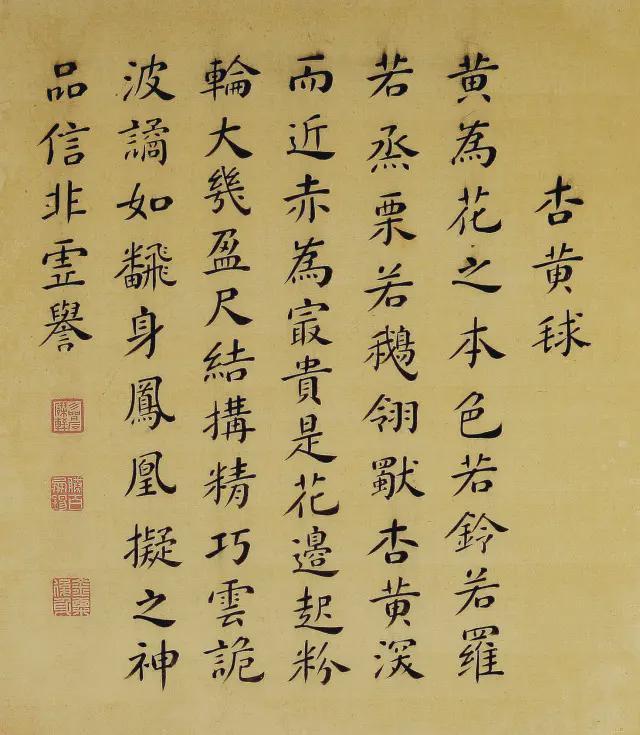 杏黄球
黄為花之本色若鈴若羅
若烝栗若鵝翎獨杏黄深
而近赤為㝡貴是花邊起粉
輪大幾盈尺結搆精巧雲詭
波譎如飜身鳳凰擬之神
品信非虛譽